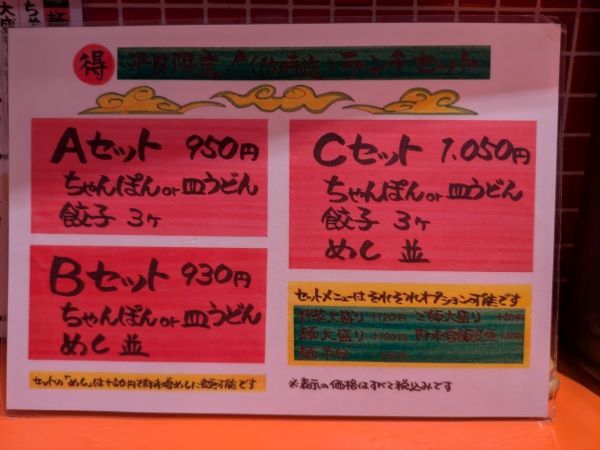 得 平日限定 ランチセット
Aセット 950円
ちゃんぽんor皿うどん
餃子 3ヶ
Bセット 930円
ちゃんぽんor皿うどん
めし 並
セットの「めし」は+50円で肉味噌めしに変更可能です
Cセット 1.050円
ちゃんぽんor皿うどん
餃子 3ヶ
めし 並
セットメニューはそれぞれオプション可能です
野菜大盛り +120円 ご飯大盛り
麺大盛り +100円
※表示の価格はすべて税込みです